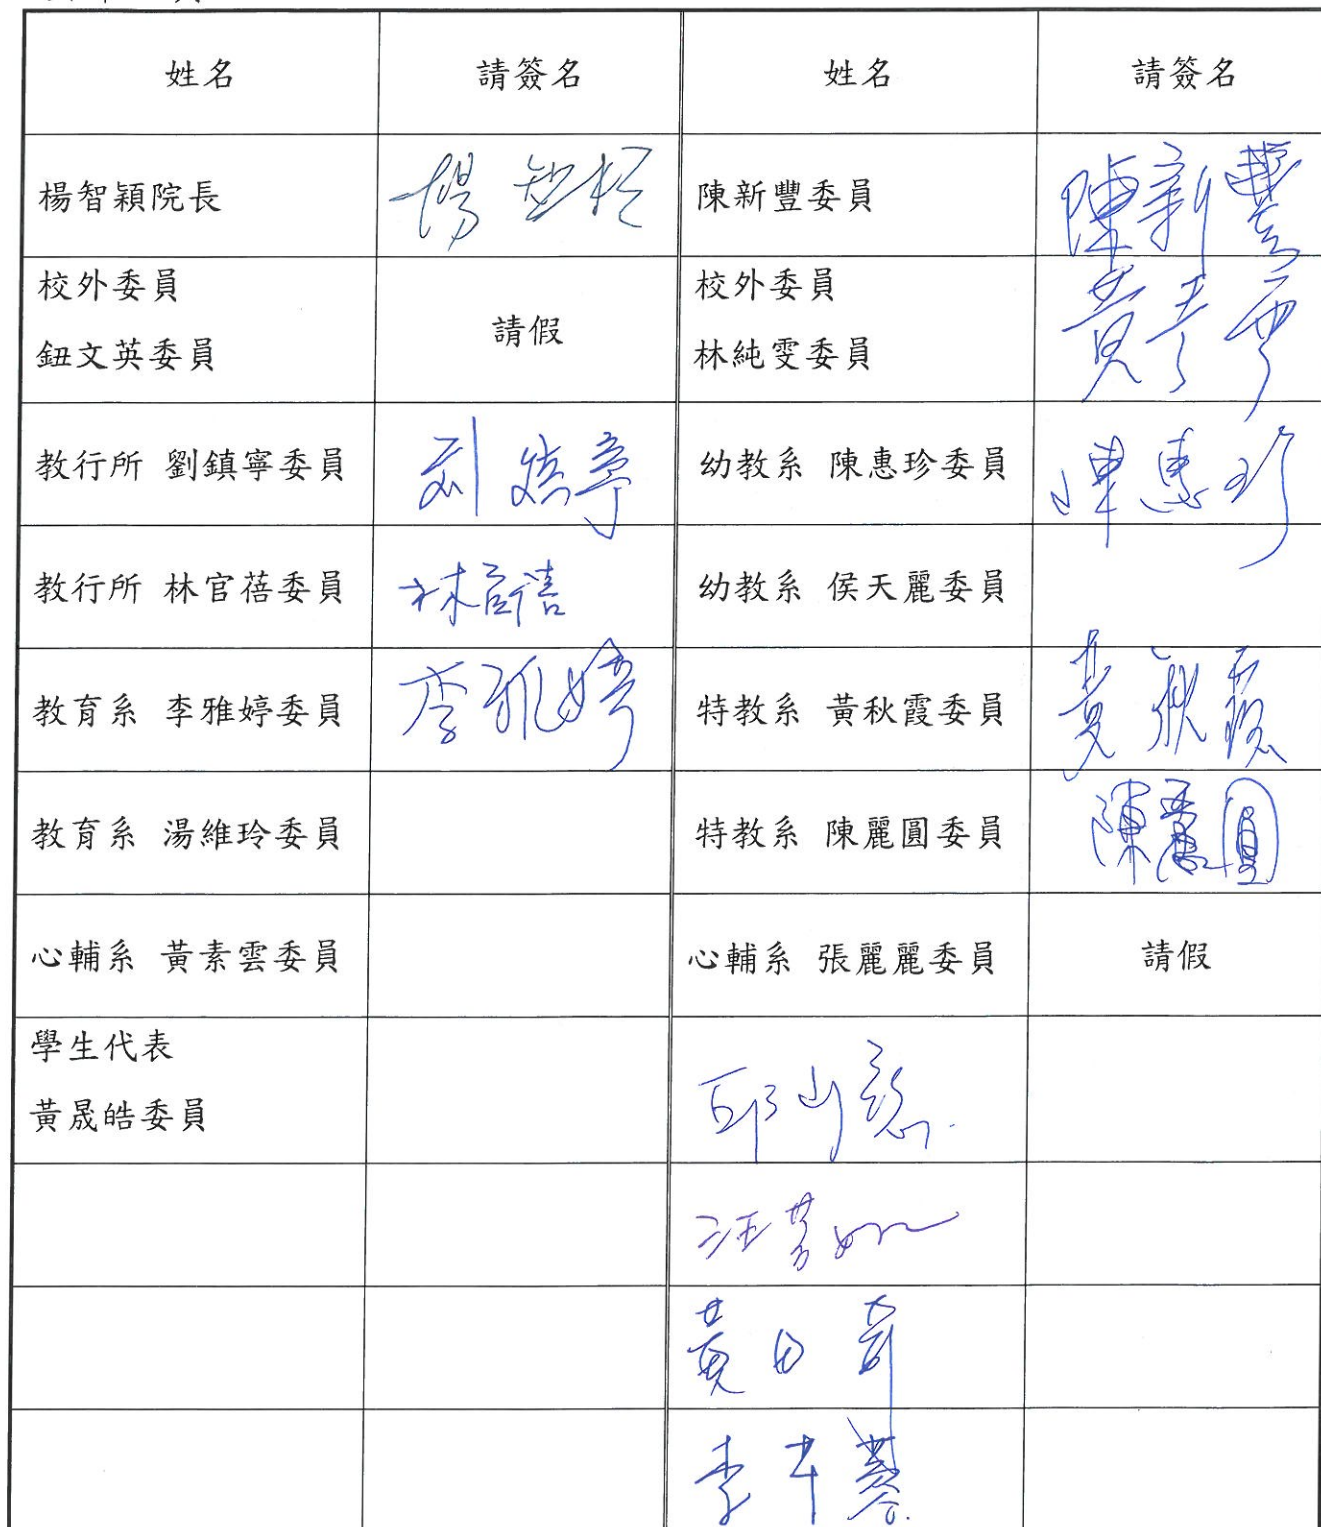 姓名 請簽名 姓名 請簽名
楊智穎院長 楊智穎 陳新豐委員 陳新豐
校外委員 校外委員
鈕文英委員 請假 林純雯委員
教行所 劉鎮寧委員 刘鎮寧 幼教系 陳惠珍委員 陳惠珍
教行所 林官蓓委員 林官蓓 幼教系 侯天麗委員
教育系 李雅婷委員 李雅婷 特教系 黃秋霞委員 黃秋霞
教育系 湯維玲委員 特教系 陳麗圓委員 陳麗圓
心輔系 黃素雲委員 心輔系 張麗麗委員 請假
學生代表
黃晟皓委員